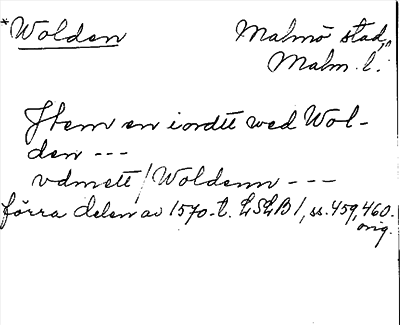 *Wolden
Malmö stad,
Malm. l.
Jtem en iordtt wed Wol-
den ---
vdmett/Woldenn ---
förra delen av 1570-t. LSLB 1, ss. 459, 460.
orig.